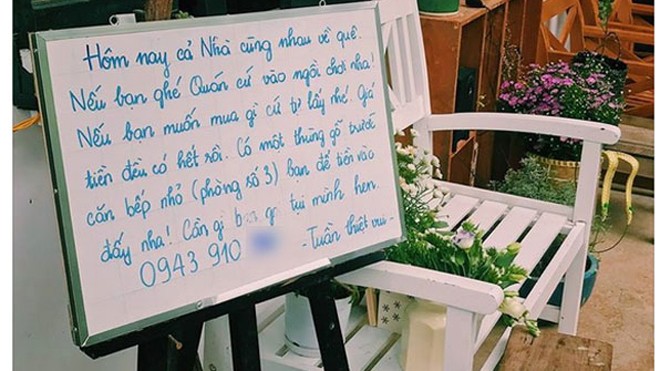 Hôm nay cả Nhà cùng nhau về quê.
Nếu bạn ghé Quán cứ vào ngồi chơi nha!
Nếu bạn muốn mua gì cứ tự lấy nhé. Giá
tiền đều có hết rồi. Có một thùng gỗ trước
căn bếp nhỏ (phòng số 3) bạn để tiền vào
đấy nha! Cần gì bạn gọi tụi mình hen.
0943 910 - Tuần thiệt vui -